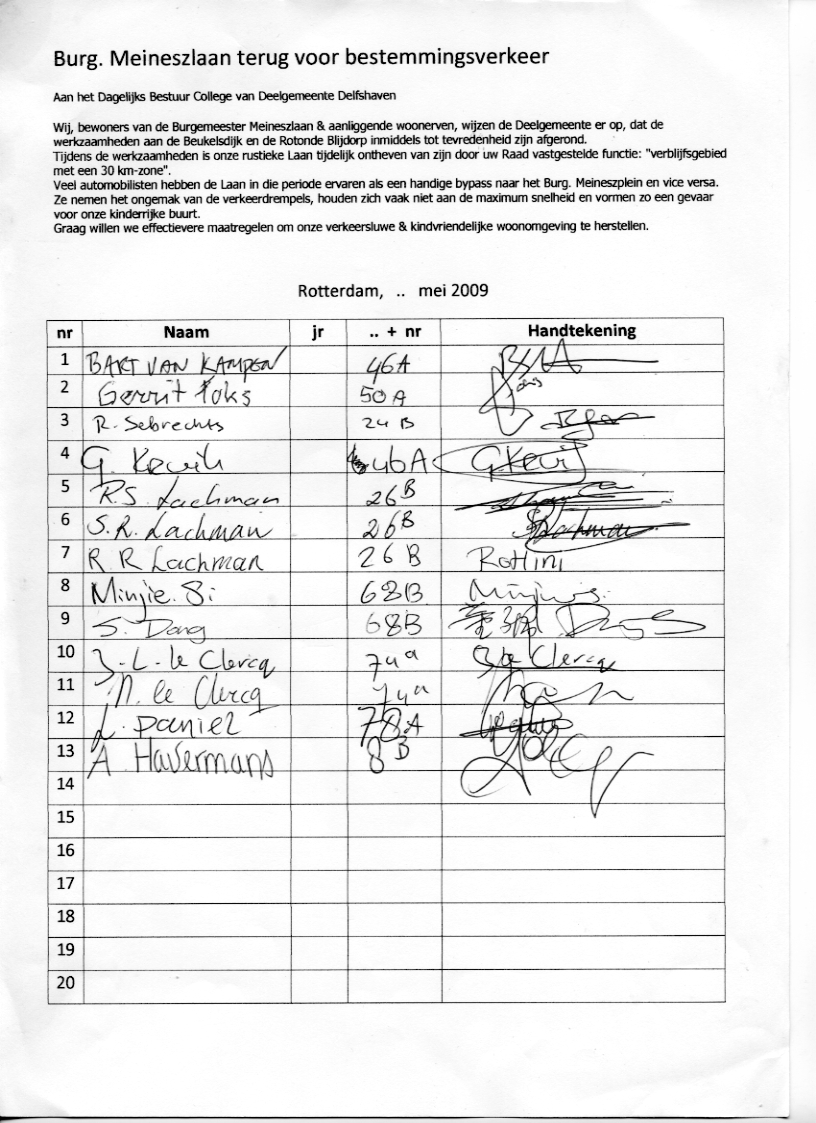 Burg. Meineszlaan terug voor bestemmingsverkeer
Aan het Dagelijks Bestuur College van Deelgemeente Delfshaven
Wij, bewoners van de Burgemeester Meineszlaan & aanliggende woonerven, wijzen de Deelgemeente er op, dat de
werkzaamheden aan de Beukelsdijk en de Rotonde Blijdorp inmiddels tot tevredenheid zijn afgerond.
Tijdens de werkzaamheden is onze rustieke Laan tijdelijk ontheven van zijn door uw Raad vastgestelde functie: "verblijfsgebied
met een 30 km-zone".
Veel automobilisten hebben de Laan in die periode ervaren als een handige bypass naar het Burg. Meineszplein en vice versa.
Ze nemen het ongemak van de verkeerdrempels, houden zich vaak niet aan de maximum snelheid en vormen zo een gevaar
voor onze kinderrijke buurt.
Graag willen we effectievere maatregelen om onze verkeersluwe & kindvriendelijke woonomgeving te herstellen.
Rotterdam, .. mei 2009
nr Naam jr .. + nr Handtekening
1 BART VAN KAMPEN 46A
2 Gerrit 50A
3 R. Sebrechts 24 B
4 G. 46A
5 R.S. Lachman 26B
6 S.R. Lachman 26B Lachman
7 R R Lachman 26 B
8 Minjie. Si 68B
9 S. Dong 68B
10 J-L-le Clercq 74a le Clercq
11 M. le Clercq 74a
12 L. DANIEL 78A
13 A Havermans 8B
14
15
16
17
18
19
20